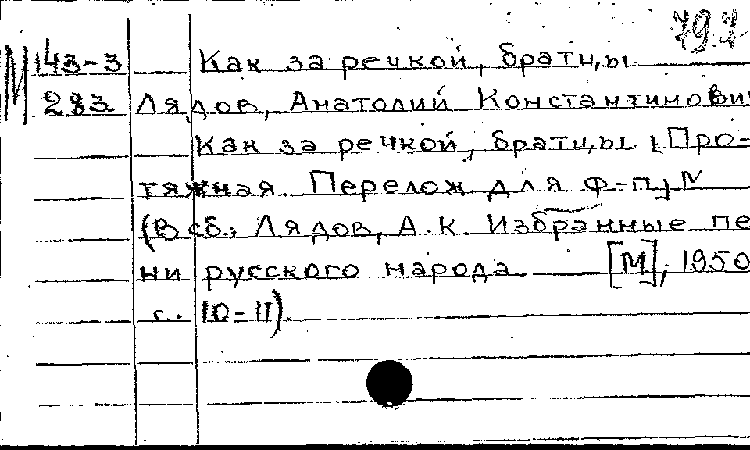 797
М 143-3 Как за речкой, братцы
283 Лядов, Анатолий Константинович
Как за речкой, братцы. [Про-
тяжная. Перелож для ф-п.]
(В сб.: Лядов, А.К. Избранные пе
ни русского народа [М], 1950
с. 10-11).